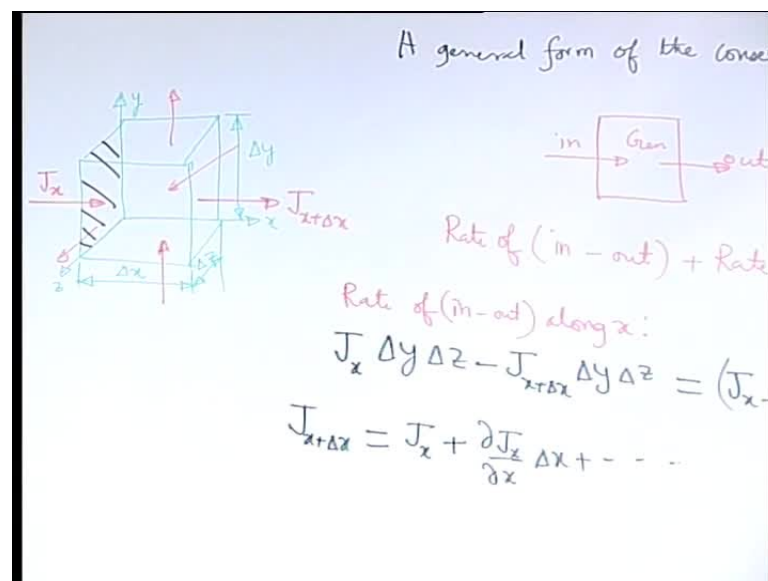 A general form of the conse
y
Δy
in
Gen
out
J_x
J_{x+Δx}
x
Δz
Δx
z
Rate of (in - out) + Rate
Rate of (in-out) along x:
J_x Δy Δz - J_{x+Δx} Δy Δz = (J_x -
J_{x+Δx} = J_x + ∂J_x/∂x Δx + - - -